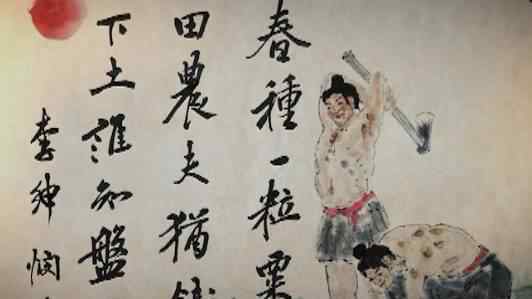 春種一粒粟
田農夫猶餓
下土誰知盤
李紳憫